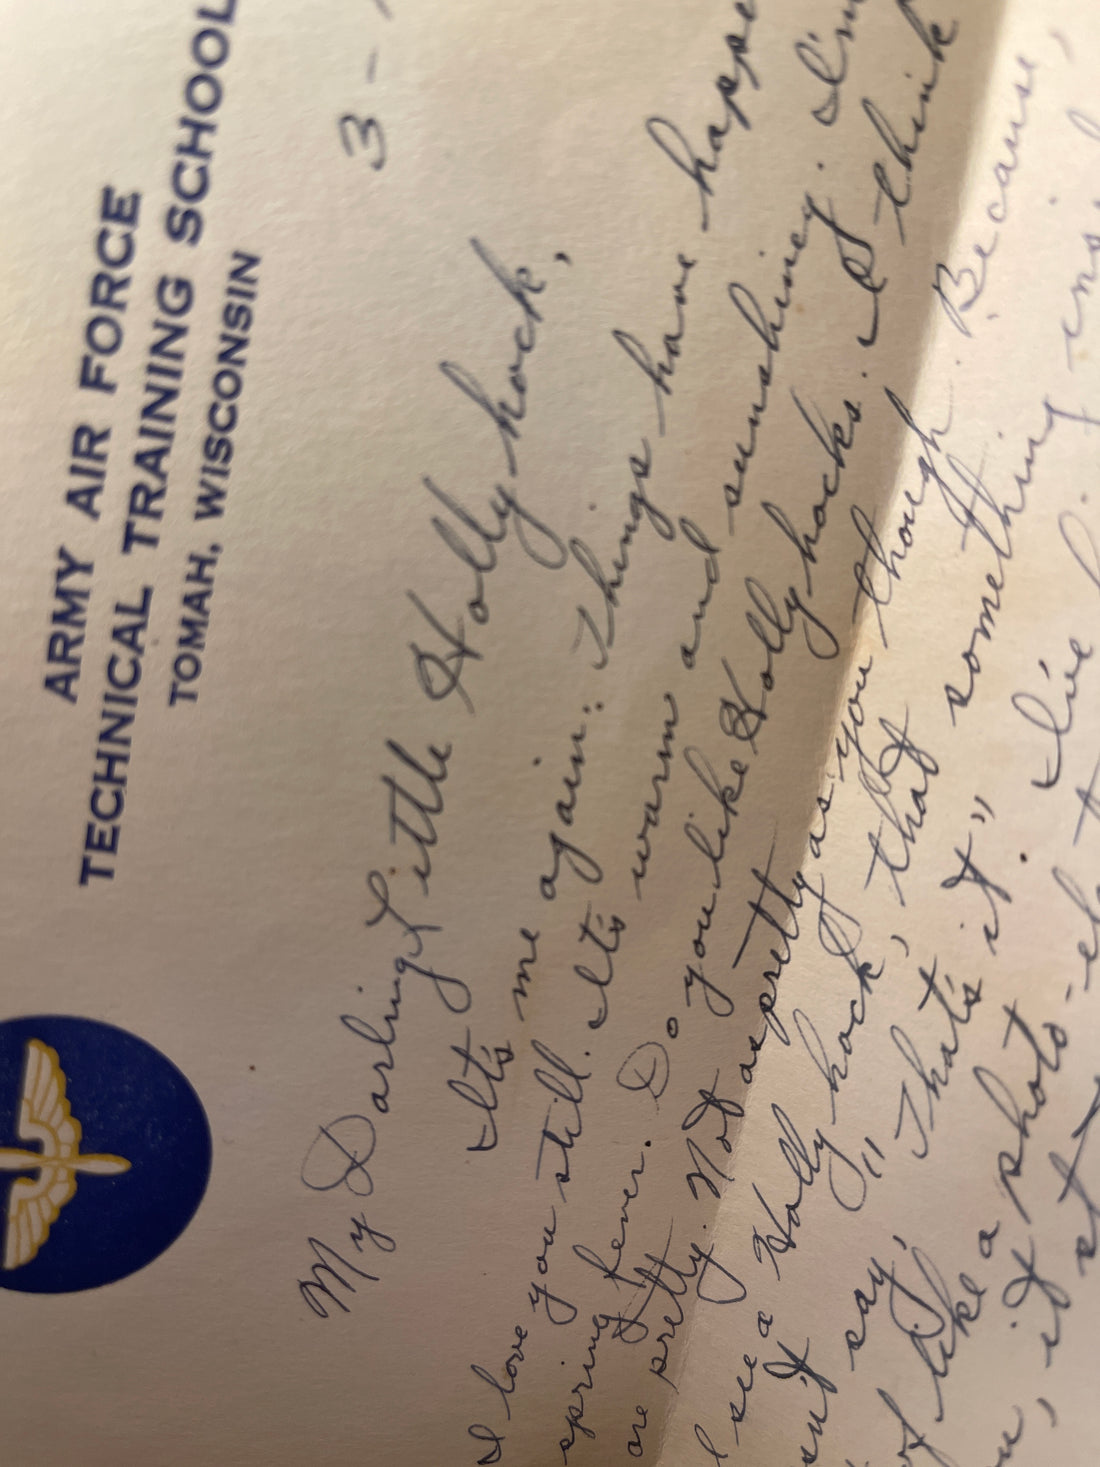 ARMY AIR FORCE
TECHNICAL TRAINING SCHOOL
TOMAH, WISCONSIN
3 -
My Darling Little Hollyhock,
It's me again: Things have happe
I love you still. It's warm and sunshiney. I'm
spring fever. Do you like Hollyhocks. I think
are pretty. Not as pretty as you though. Because,
see a Hollyhock, that something
say, "That's it". I've
of like a photo-
, it